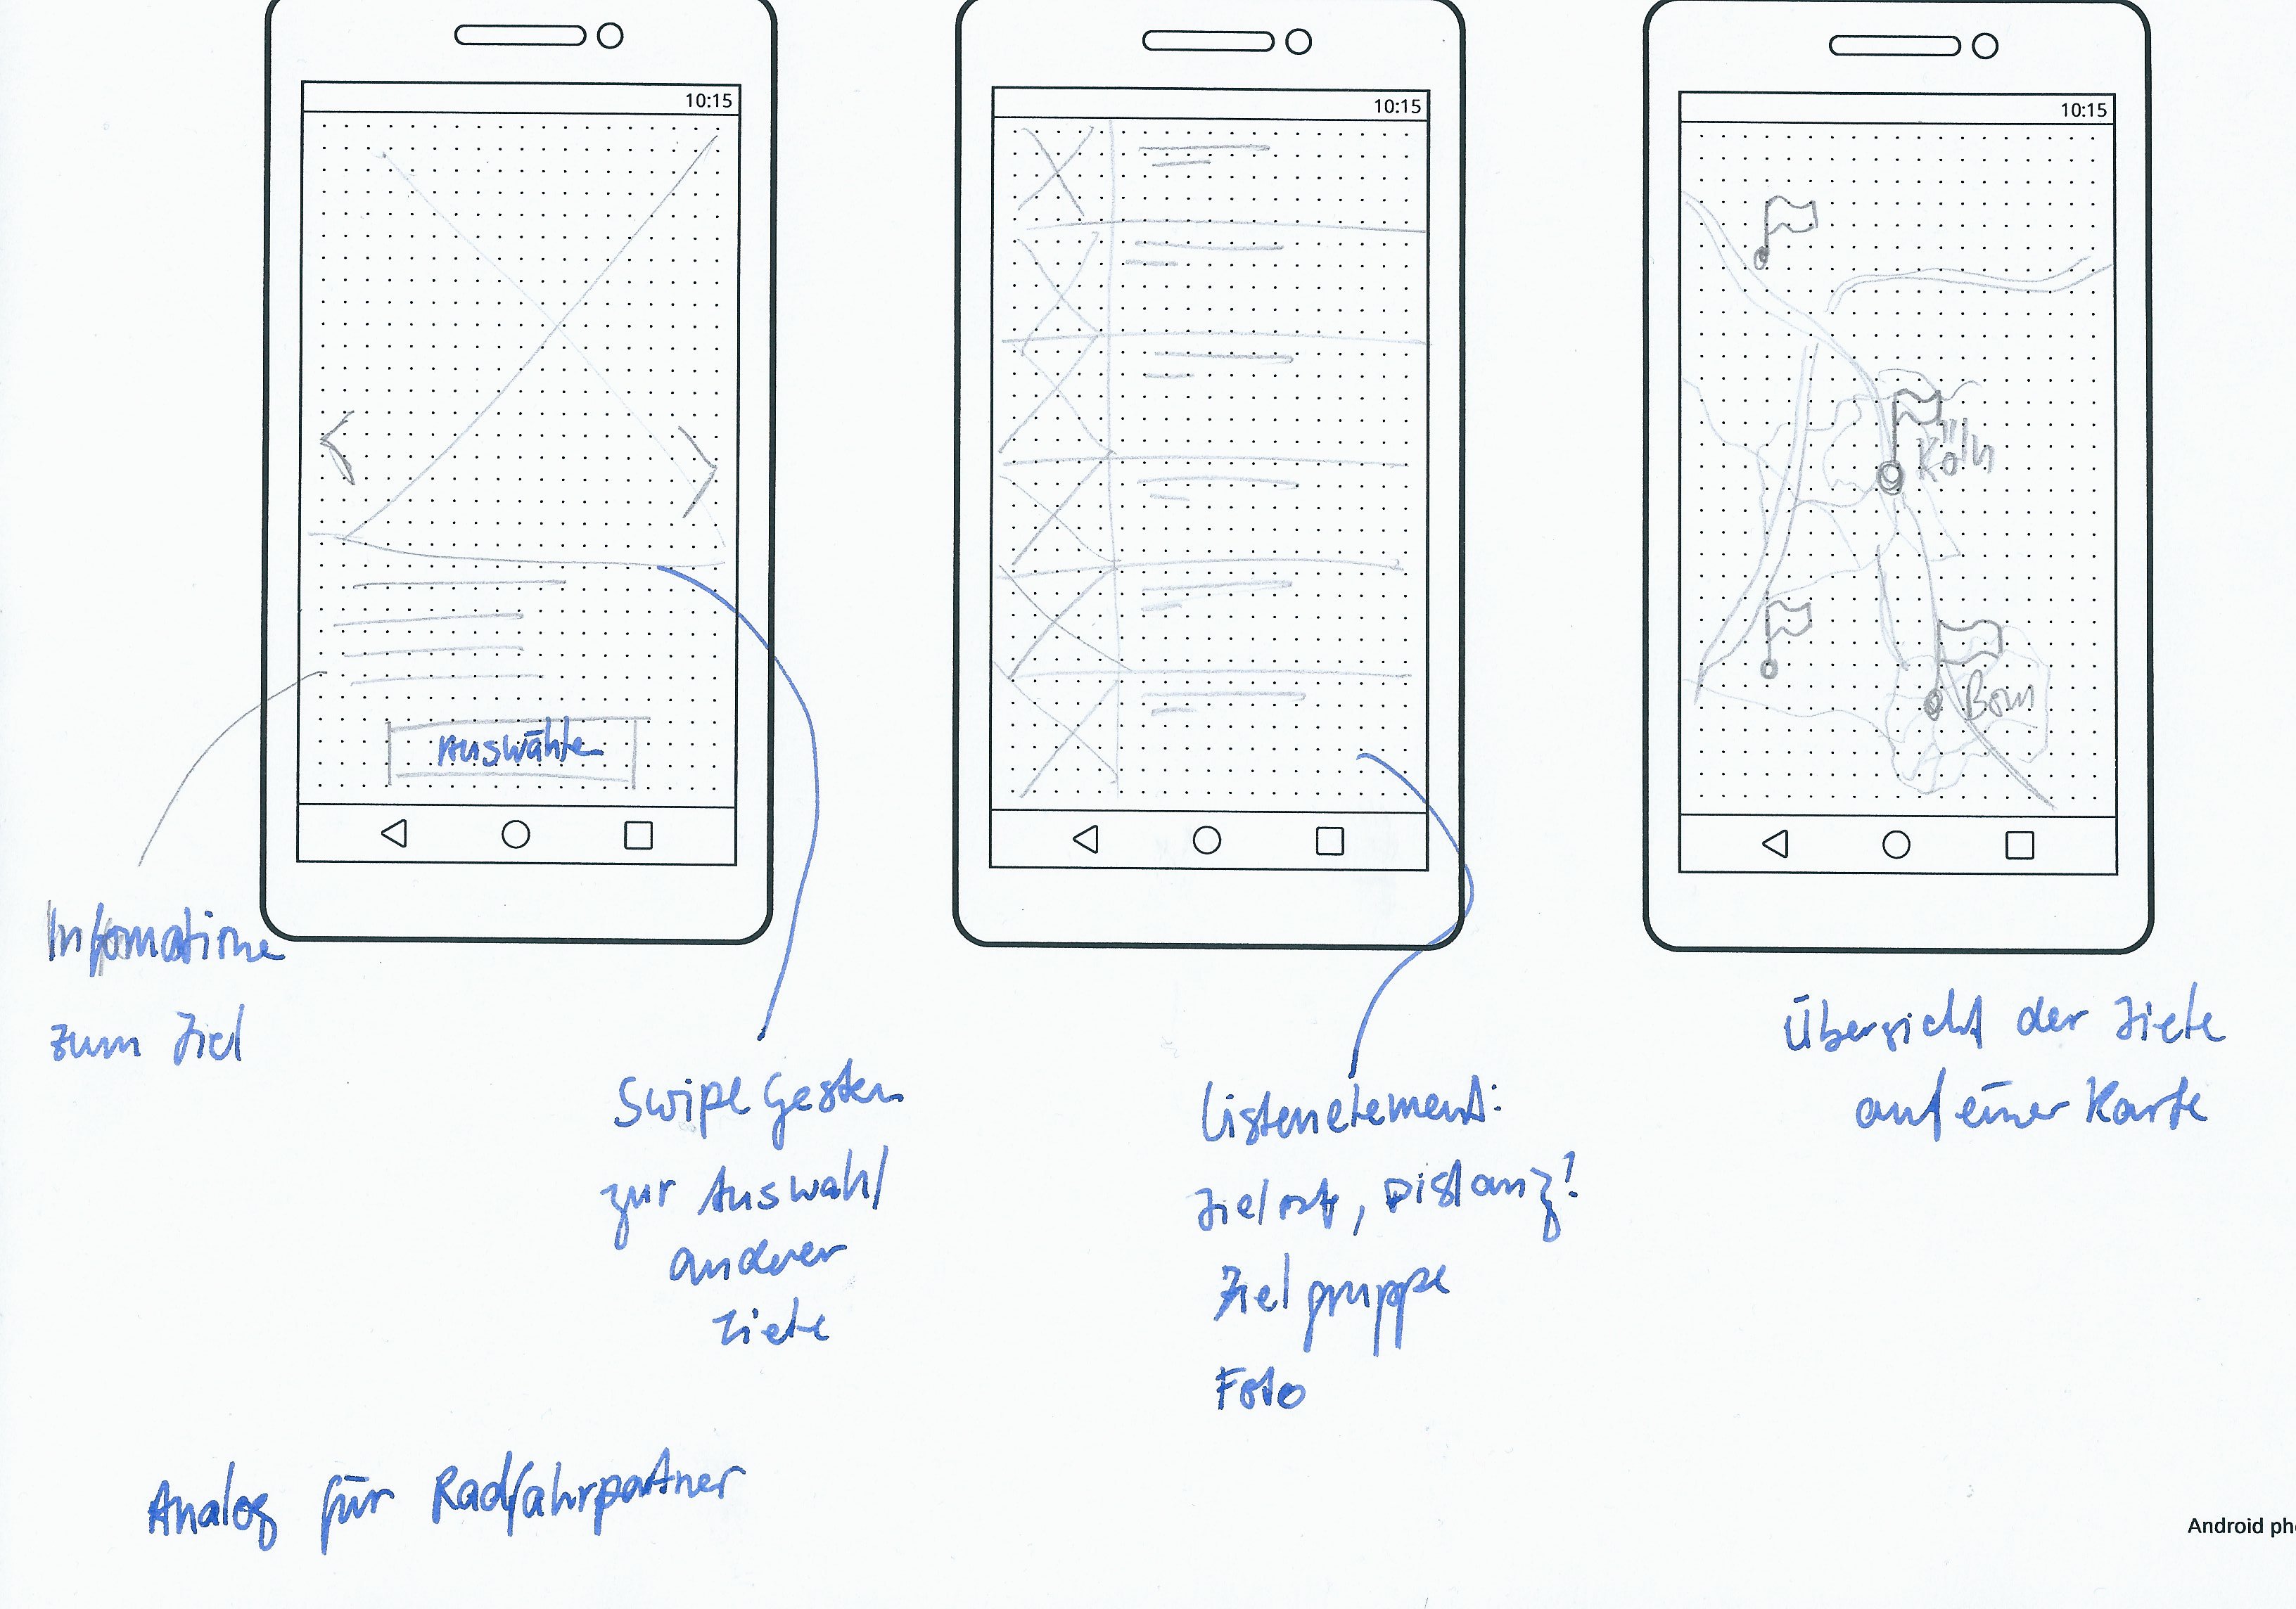 10:15
10:15
10:15
Köln
Bonn
Auswählen
Informationen
zum Ziel
Swipe Gesten
zur Auswahl
anderer
Ziele
Listenelement:
Zielort, Distanz!
Zielgruppe
Foto
Übersicht der Ziele
auf einer Karte
Analog für Radfahrpartner
Android pho